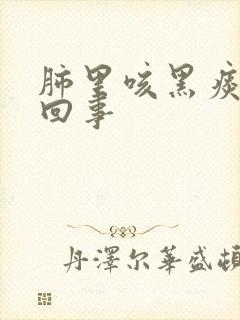 肺里咳黑痰
回事
丹澤尔華盛頓